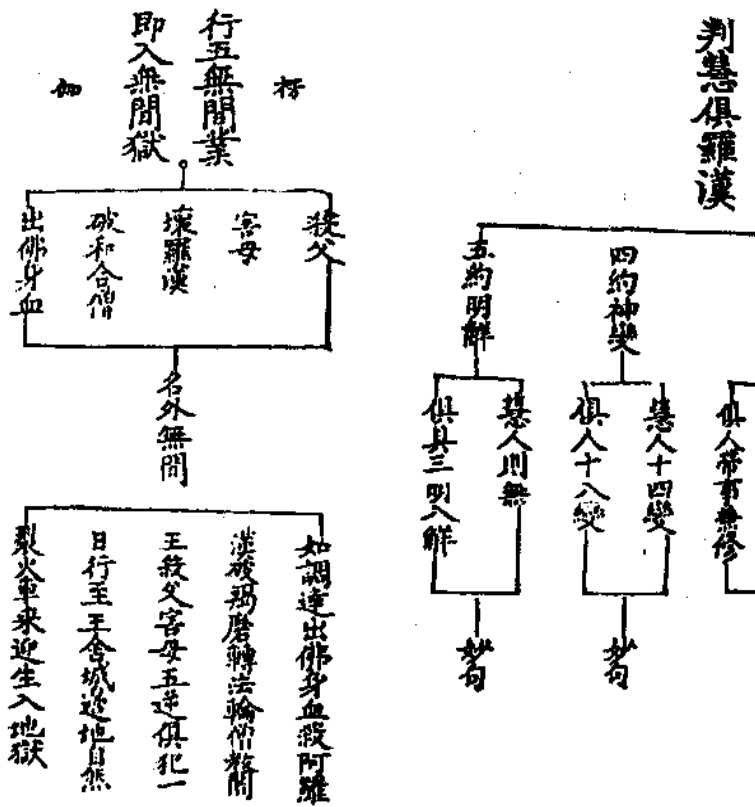 判慧俱羅漢
俱人帶事兼修
四約神變
慧人十四變
俱人十八變
妙句
五約明解
慧人則無
俱具三明八解
妙句
行五無間業
即入無間獄
殺父
害母
壞羅漢
破和合僧
出佛身血
名外無間
如調達出佛身血殺阿羅
漢破羯磨轉法輪僧教闍
王殺父害母五逆俱犯一
日行至王舍城遊地自然
裂火車來迎生入地獄